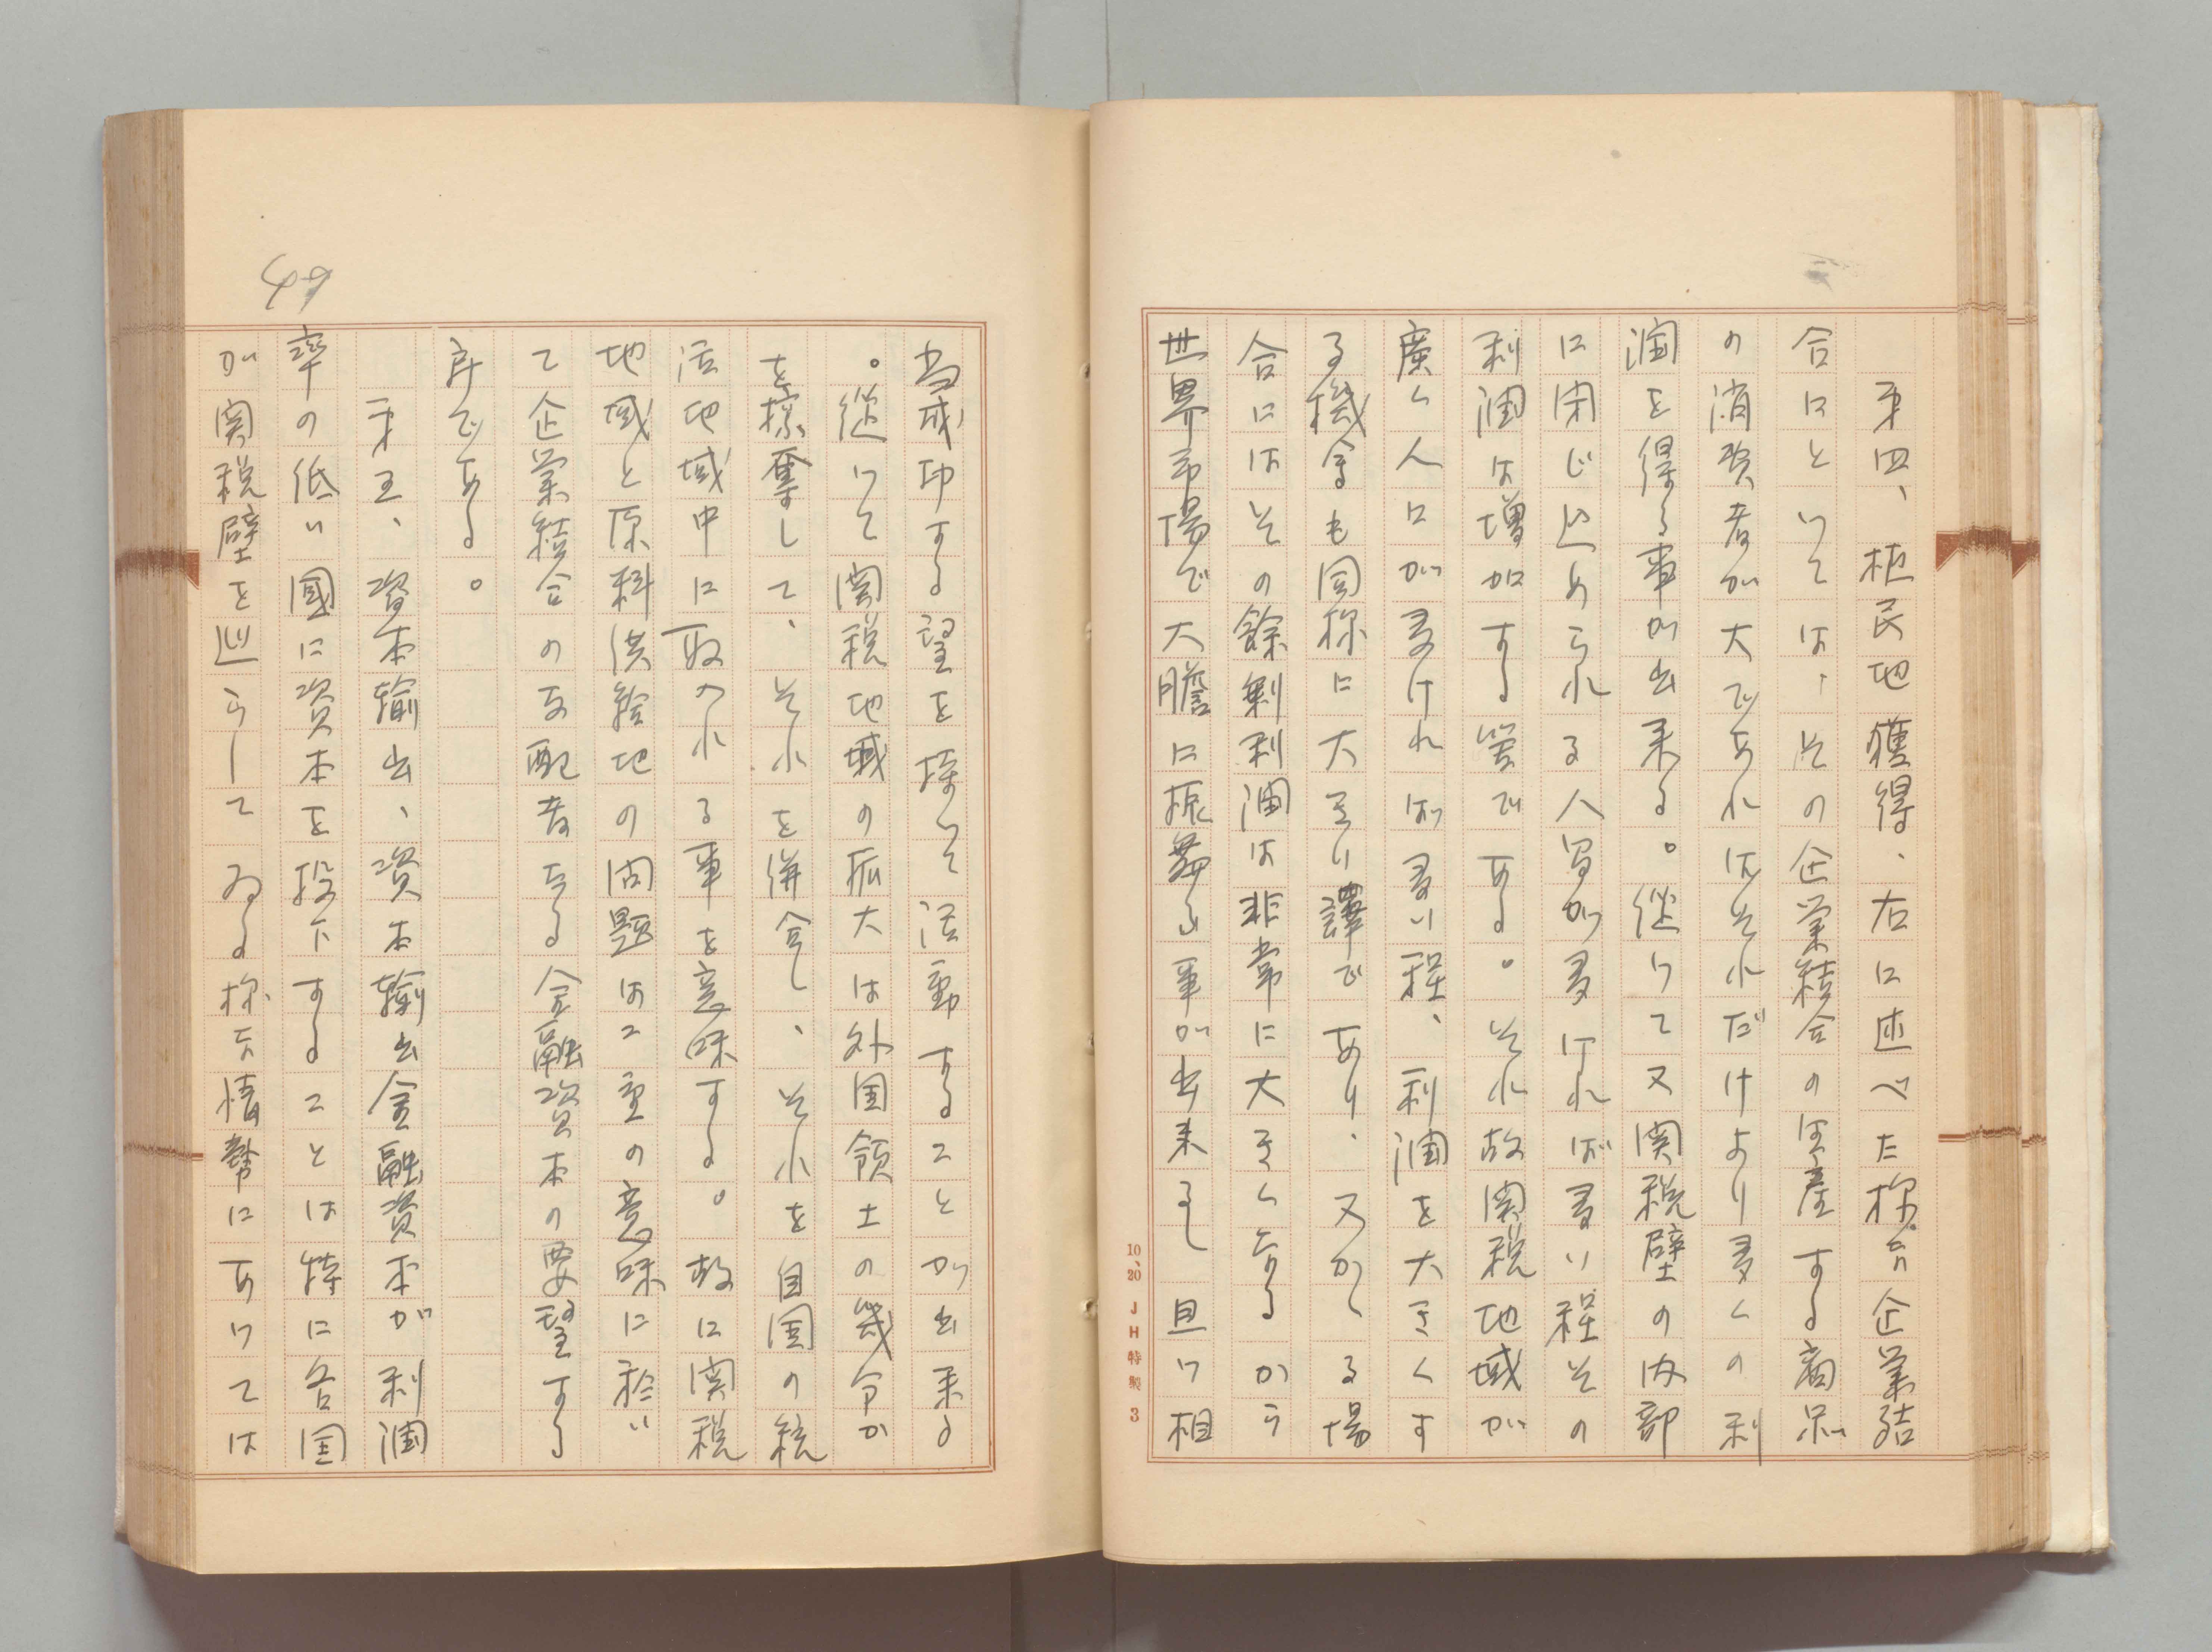 第四、植民地獲得、右に述べた様な企業結
合にとつては、その企業結合の生産する商品
の消費者が大であればそれだけより多くの利
潤を得る事が出来る。従つて又関税壁の内部
に閉じ込められる人間が多ければ多い程その
利潤は増加する筈である。それ故関税地域が
廣く人口が多ければ多い程、利潤を大きくす
る機会も同様に大きい譯であり、又かゝる場
合にはその餘剰利潤は非常に大きくなるから
世界市場で大膽に振舞る事が出来るし且つ相
10、20 JH特製 3
当成功する望を持つて活動することが出来る
。従つて関税地域の拡大は外国領土の幾分か
を掠奪して、それを併合し、それを自国の統
治地域中に取入れる事を意味する。故に関税
地域と原料供給地の問題は二重の意味に於い
て企業結合の支配者なる金融資本の要望する
所である。
第五、資本輸出、資本輸出金融資本が利潤
率の低い國に資本を投下することは特に各国
が関税壁を巡らしてゐる様な情勢にあつては